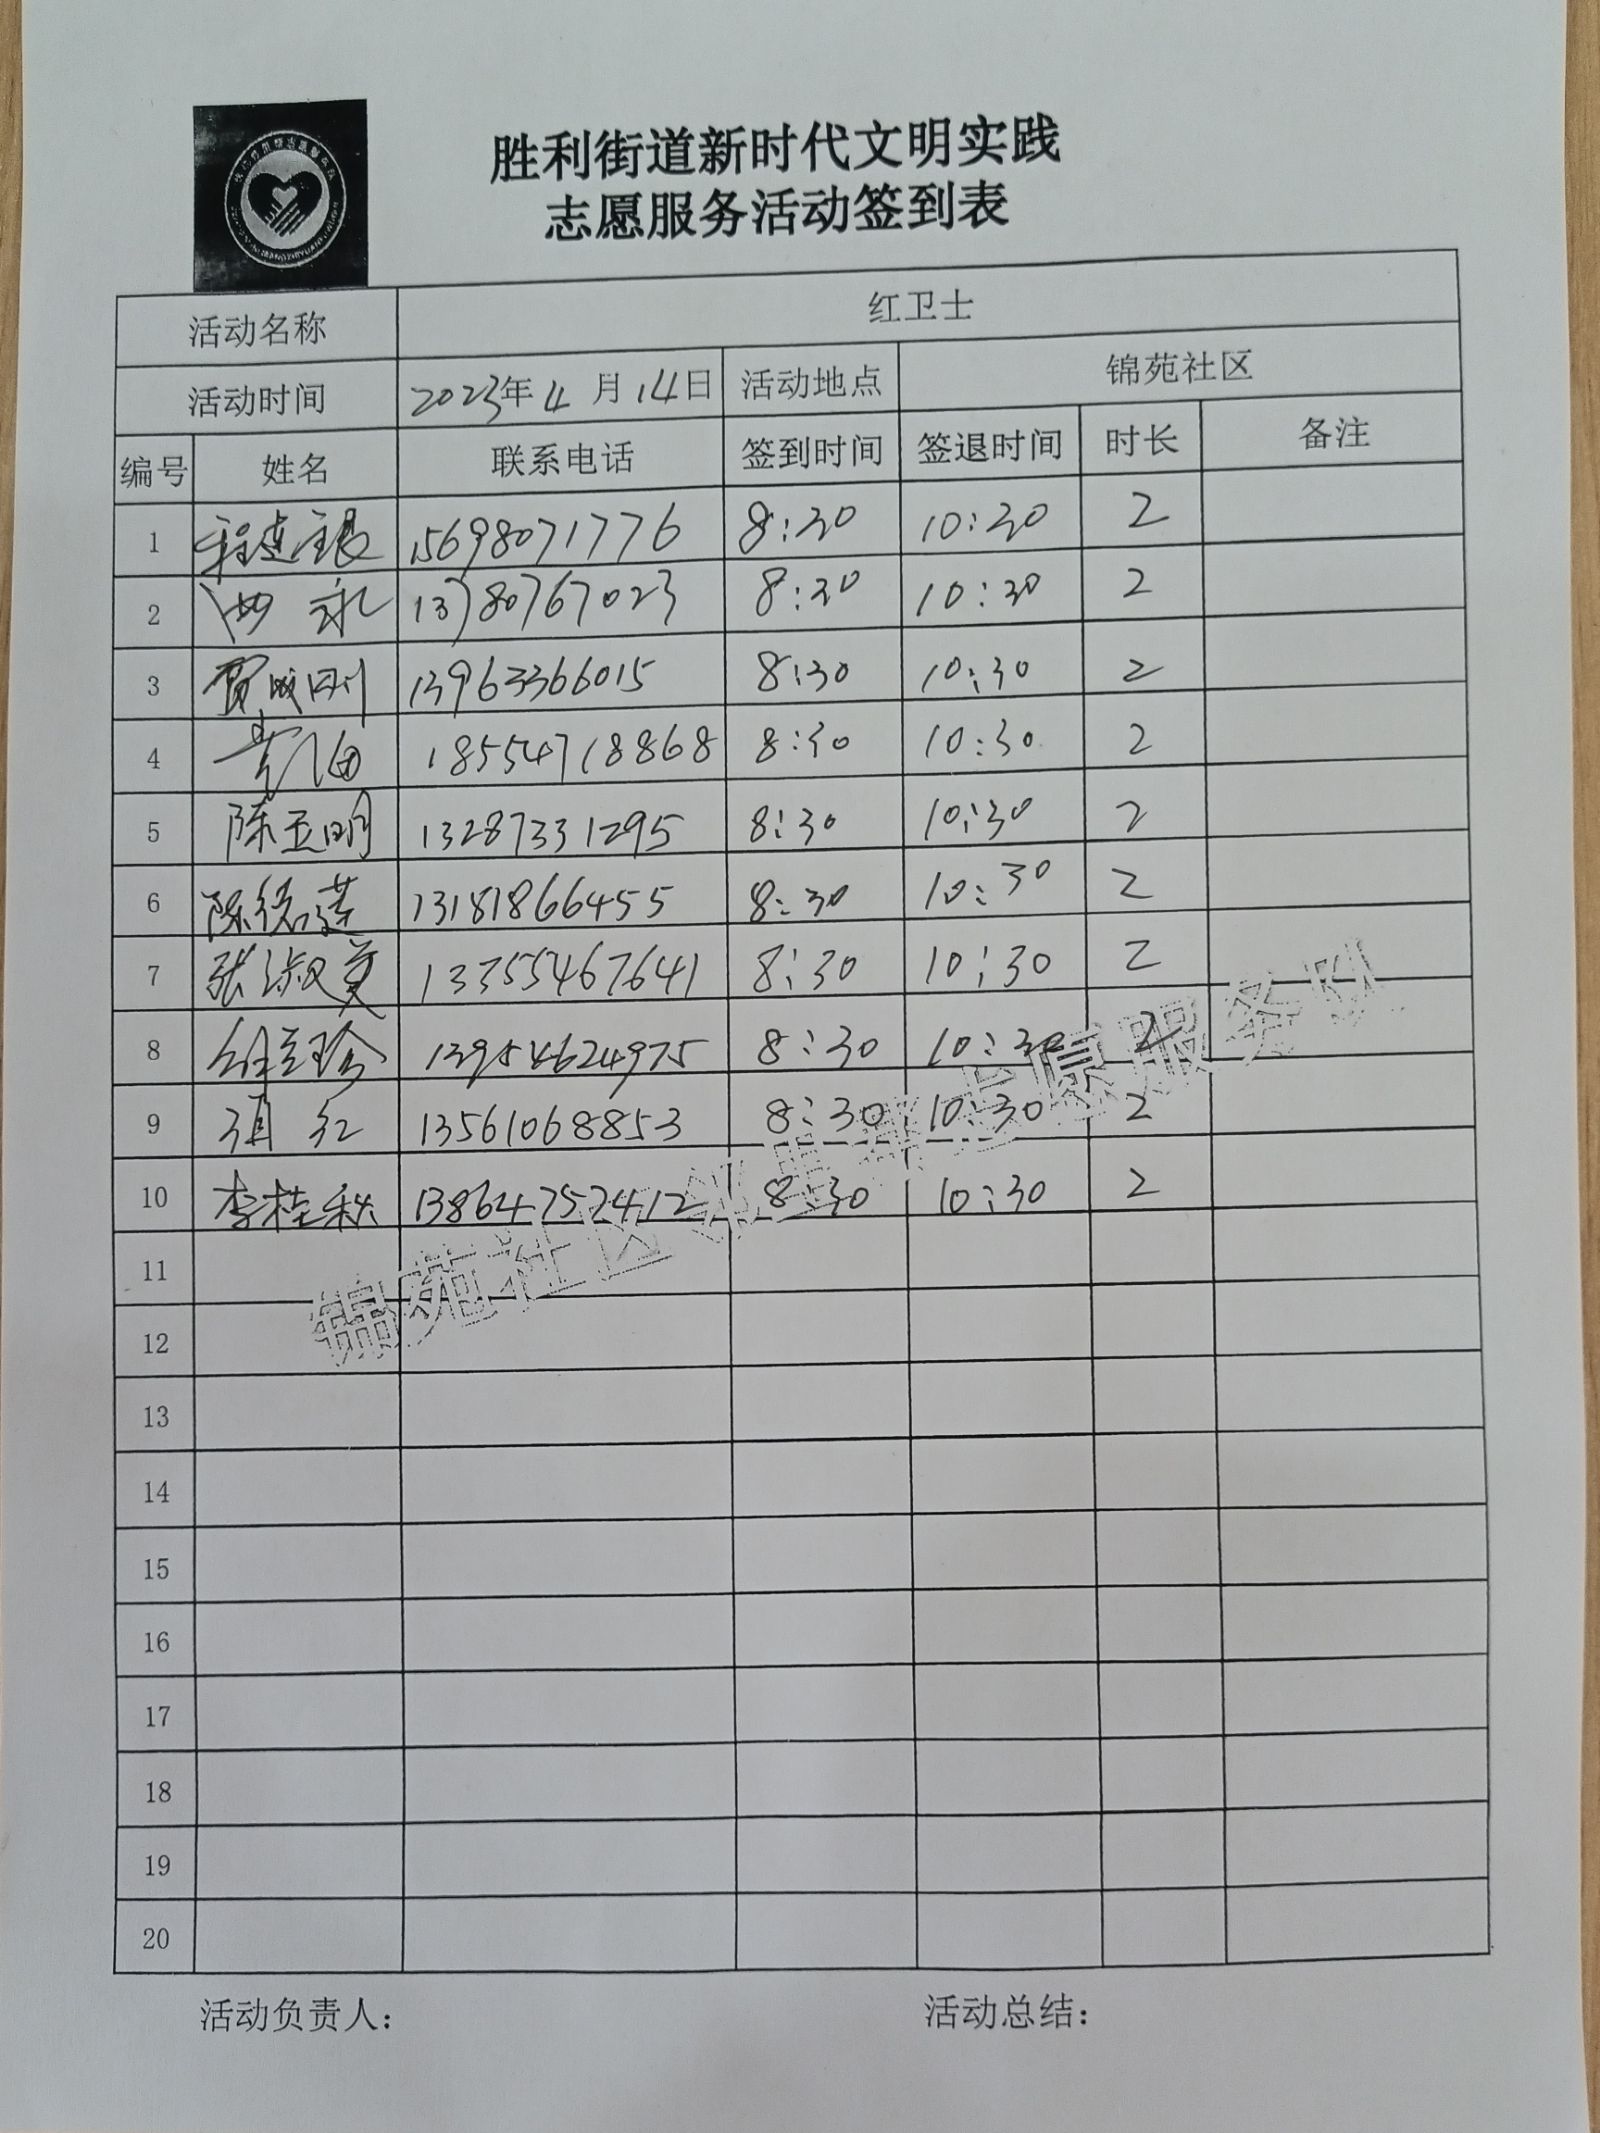 胜利街道新时代文明实践
志愿服务活动签到表
活动名称 红卫士
活动时间 2023年4月14日 活动地点 锦苑社区
编号 姓名 联系电话 签到时间 签退时间 时长 备注
1 15698071776 8:30 10:30 2
2 13780767023 8:30 10:30 2
3 贾成刚 13963366015 8:30 10:30 2
4 18554718868 8:30 10:30 2
5 陈玉明 13287331295 8:30 10:30 2
6 陈德莲 13181866455 8:30 10:30 2
7 张淑英 13355467641 8:30 10:30 2
8 13954624975 8:30 10:30 2
9 红 13561068853 8:30 10:30 2
10 李桂秋 13864752412 8:30 10:30 2
11
12
13
14
15
16
17
18
19
20
活动负责人： 活动总结：